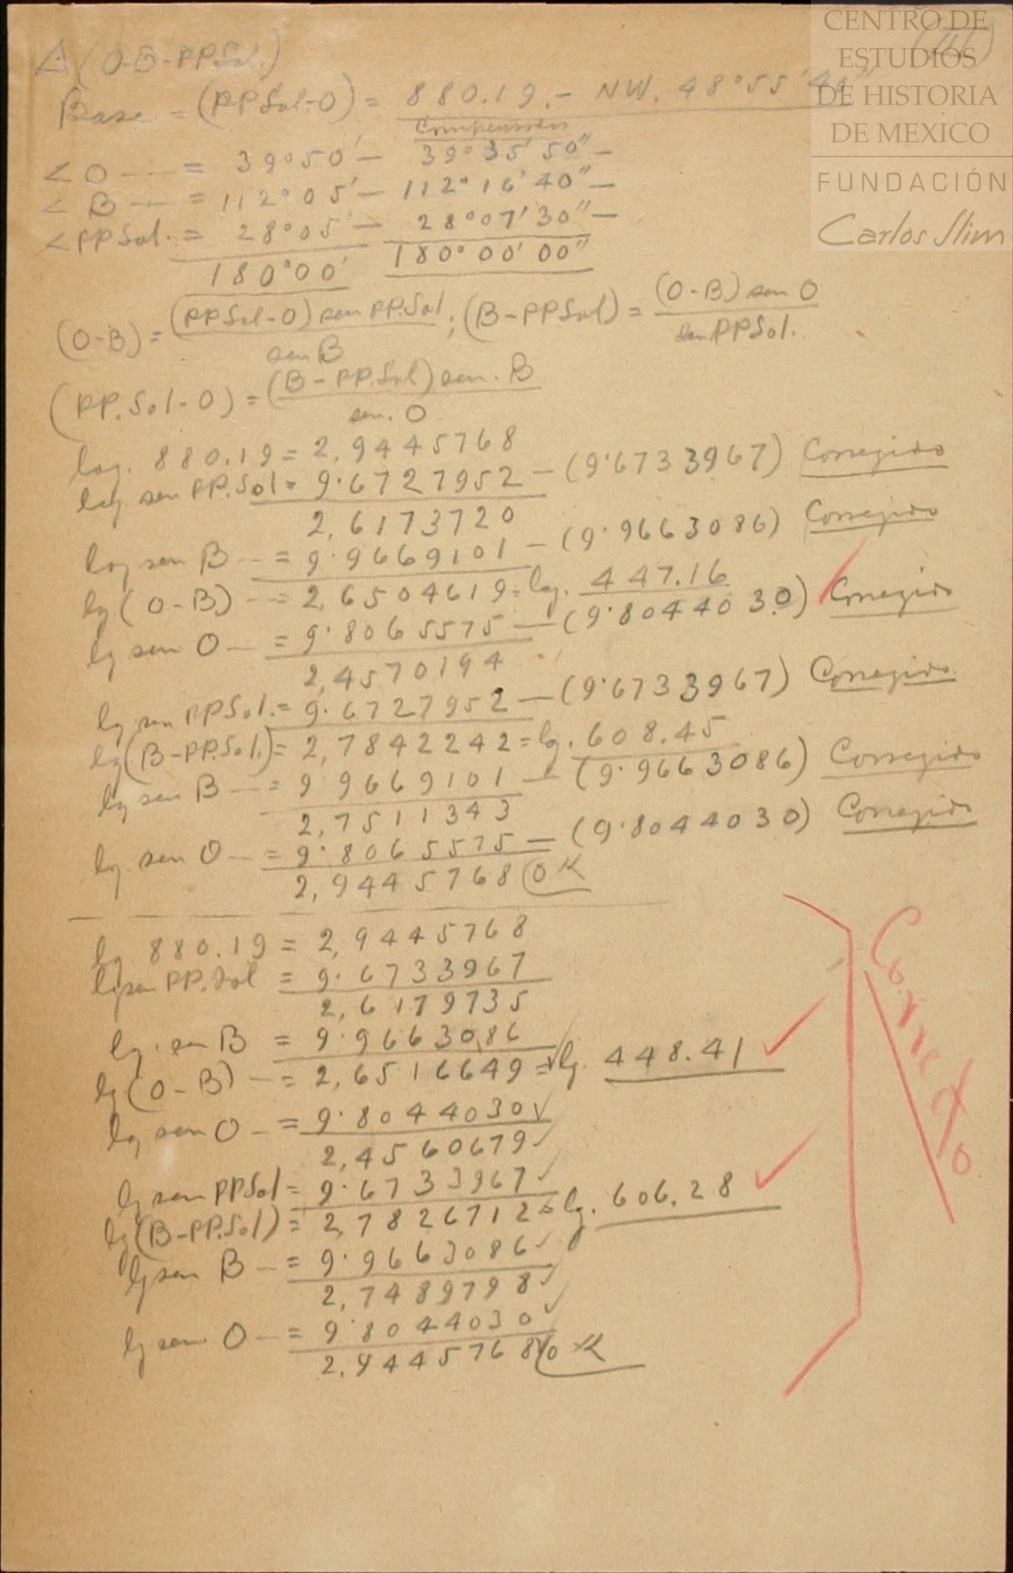 CENTRO DE
ESTUDIOS
DE HISTORIA
DE MEXICO
FUNDACIÓN
Carlos Slim
△ (O-B-PP.Sol.)
Base = (PPSol-O) = 880.19.- NW. 48°55'
Compensados
< O --- = 39°50' - 39°35'50" -
< B --- = 112°05' - 112°16'40" -
< PPSol. = 28°05' - 28°07'30" -
180°00' 180°00'00"
(O-B) = (PPSol-O) sen PP.Sol / sen B ; (B-PPSol) = (O-B) sen O / sen PPSol.
(PP.Sol-O) = (B-PP.Sol) sen. B / sen. O
log. 880.19 = 2,9445768
log sen PP.Sol = 9.6727952 - (9.6733967) Corregido
2,6173720
log sen B --- = 9.9669101 - (9.9663086) Corregido
lg (O-B) --- = 2,6504619 = log. 447.16
lg sen O --- = 9.8065575 - (9.8044030) Corregido
2,4570194
lg. sen PPSol. = 9.6727952 - (9.6733967) Corregido
lg (B-PP.Sol.) = 2,7842242 = lg. 608.45
lg sen B --- = 9 9669101 - (9.9663086) Corregido
2,7511343
lg. sen O --- = 9.8065575 - (9.8044030) Corregido
2,9445768 OK
lg 880.19 = 2,9445768
lg sen PP.Sol = 9.6733967
2,6179735
lg. sen B = 9.9663086
lg (O-B) --- = 2,6516649 = lg. 448.41
lg sen O --- = 9.8044030
2,4560679
lg sen PPSol = 9.6733967
lg (B-PP.Sol) = 2,7826712 = lg. 606.28
lg sen B --- = 9.9663086
2,7489798
lg sen O --- = 9.8044030
2,9445768 OK
Correcto